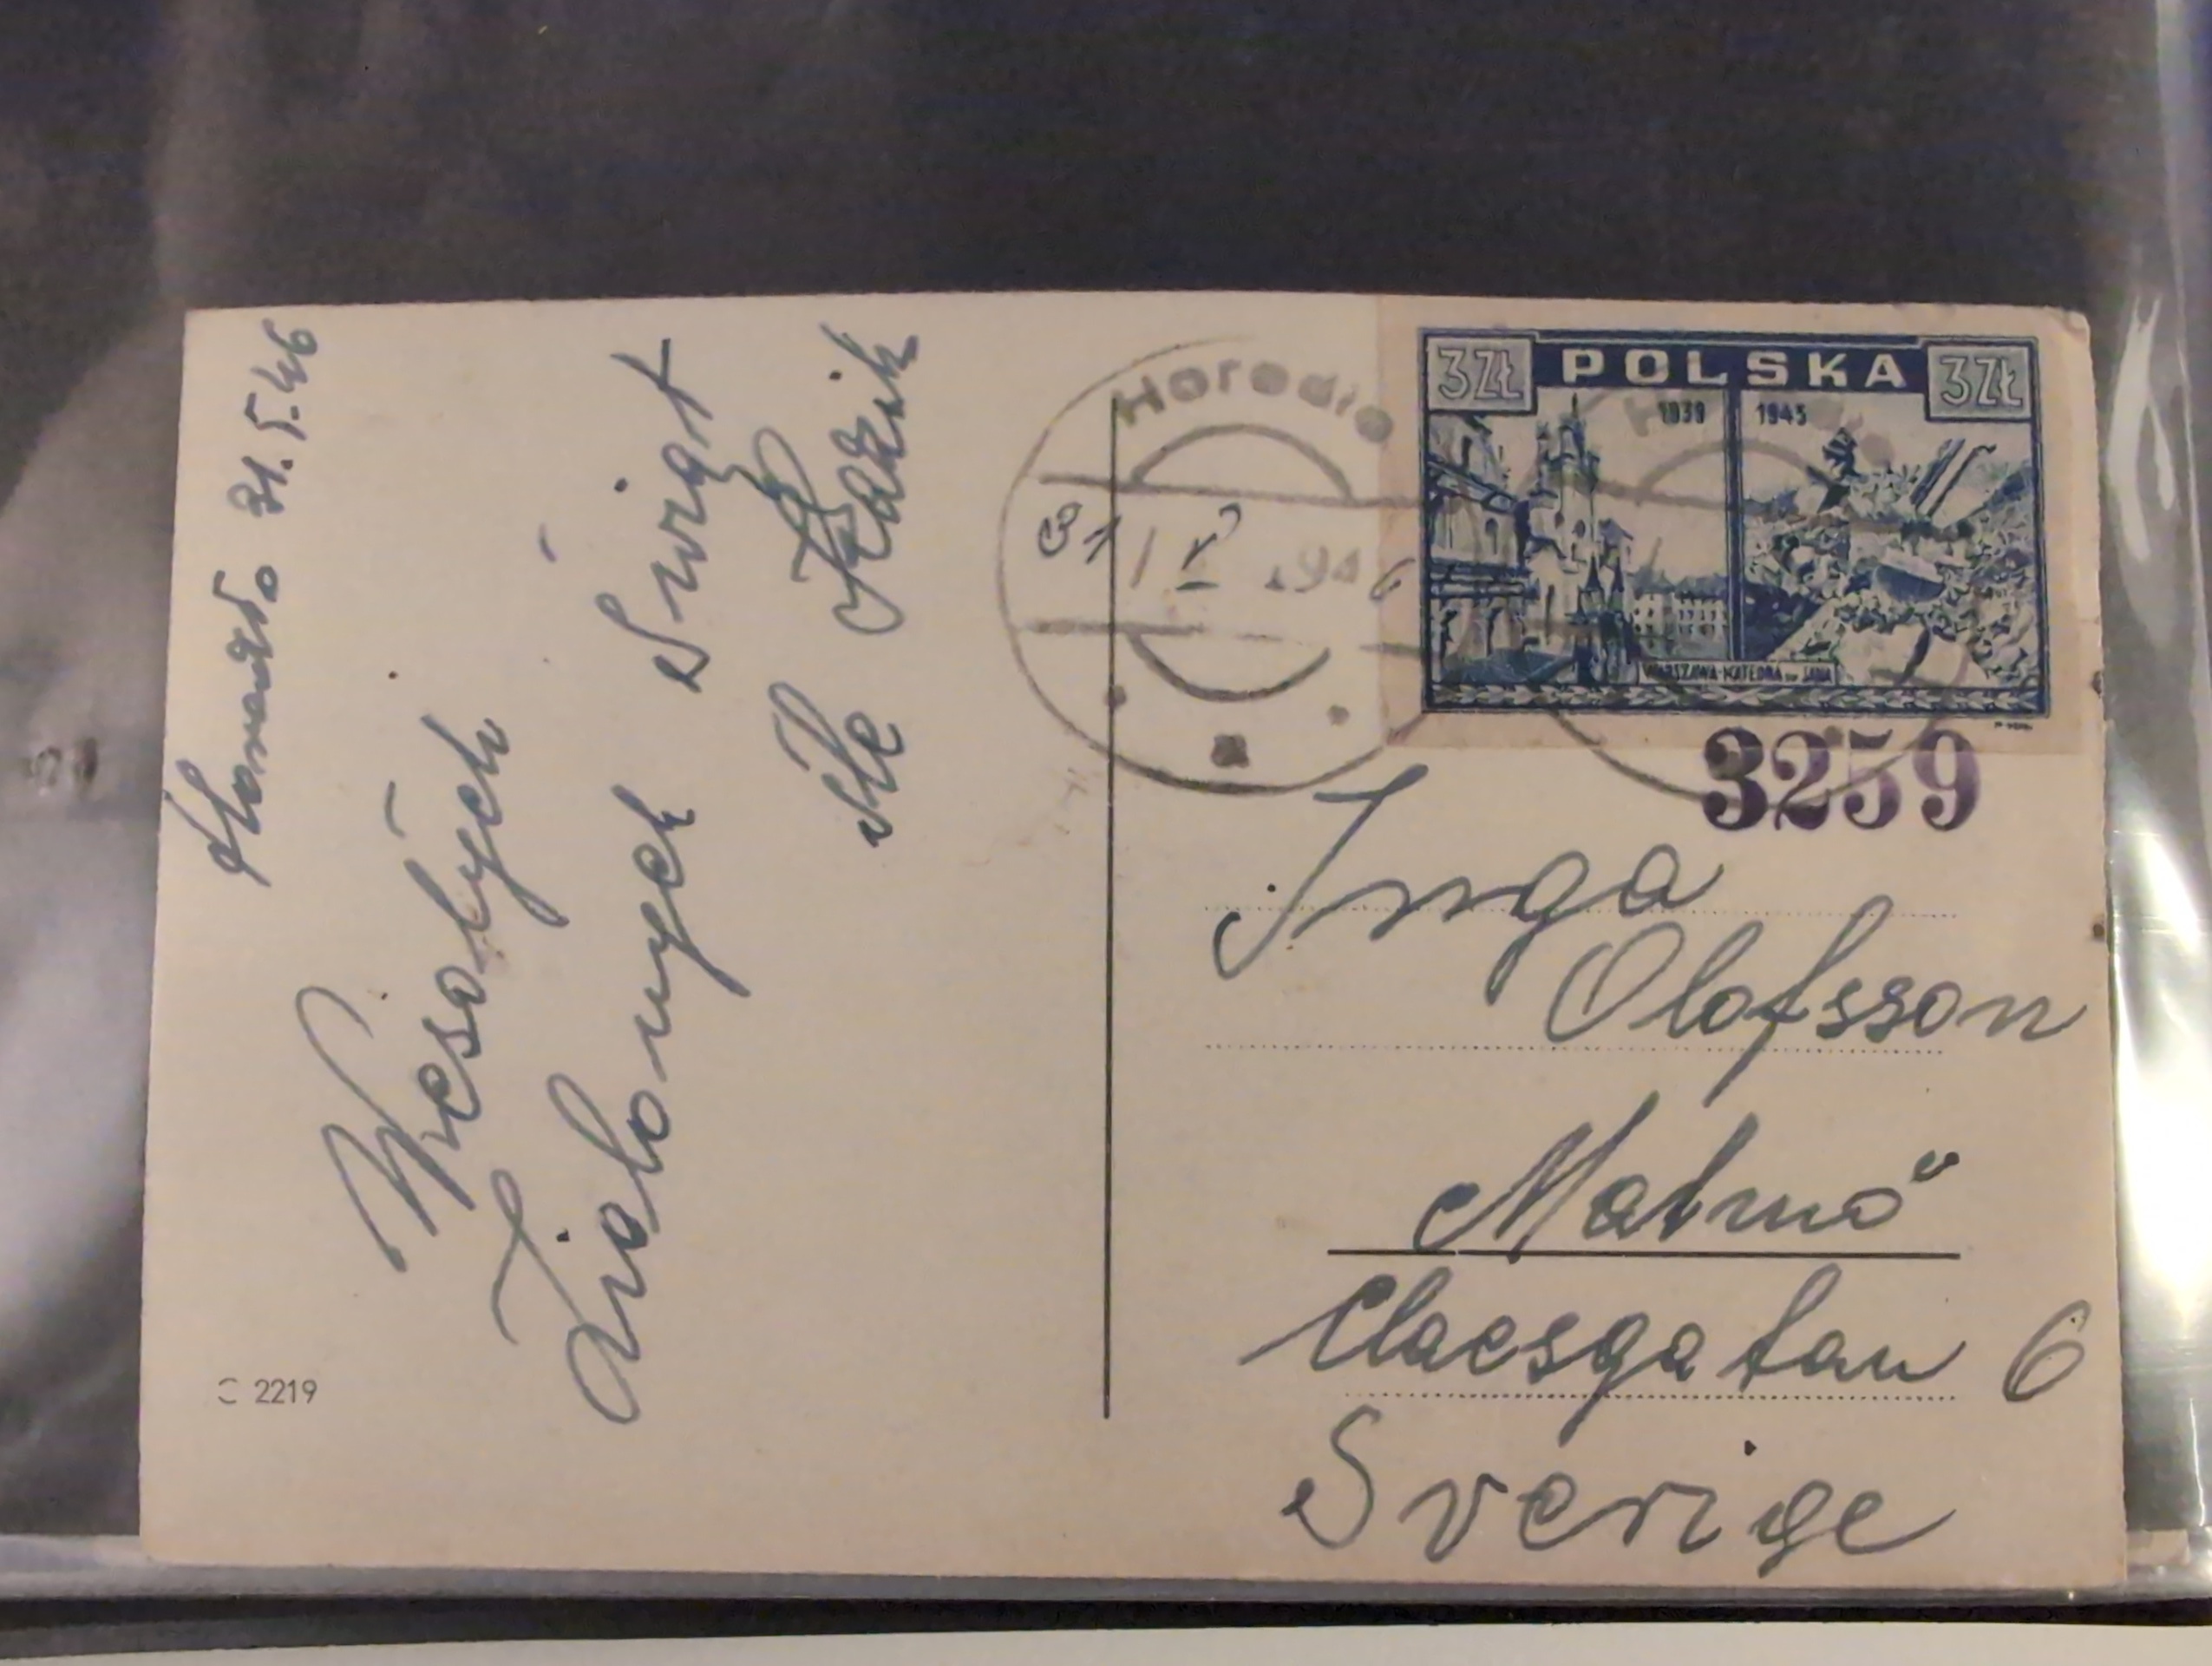 Horodło 31.5.46
Wesołych
Zielonych Świąt
śle
C 2219
Horodło
31 V 1946
a
3ZŁ POLSKA 3ZŁ
1939 1945
WARSZAWA-KATEDRA ŚW. JANA
3259
Inga
Olofsson
Malmö
Claesgatan 6
Sverige